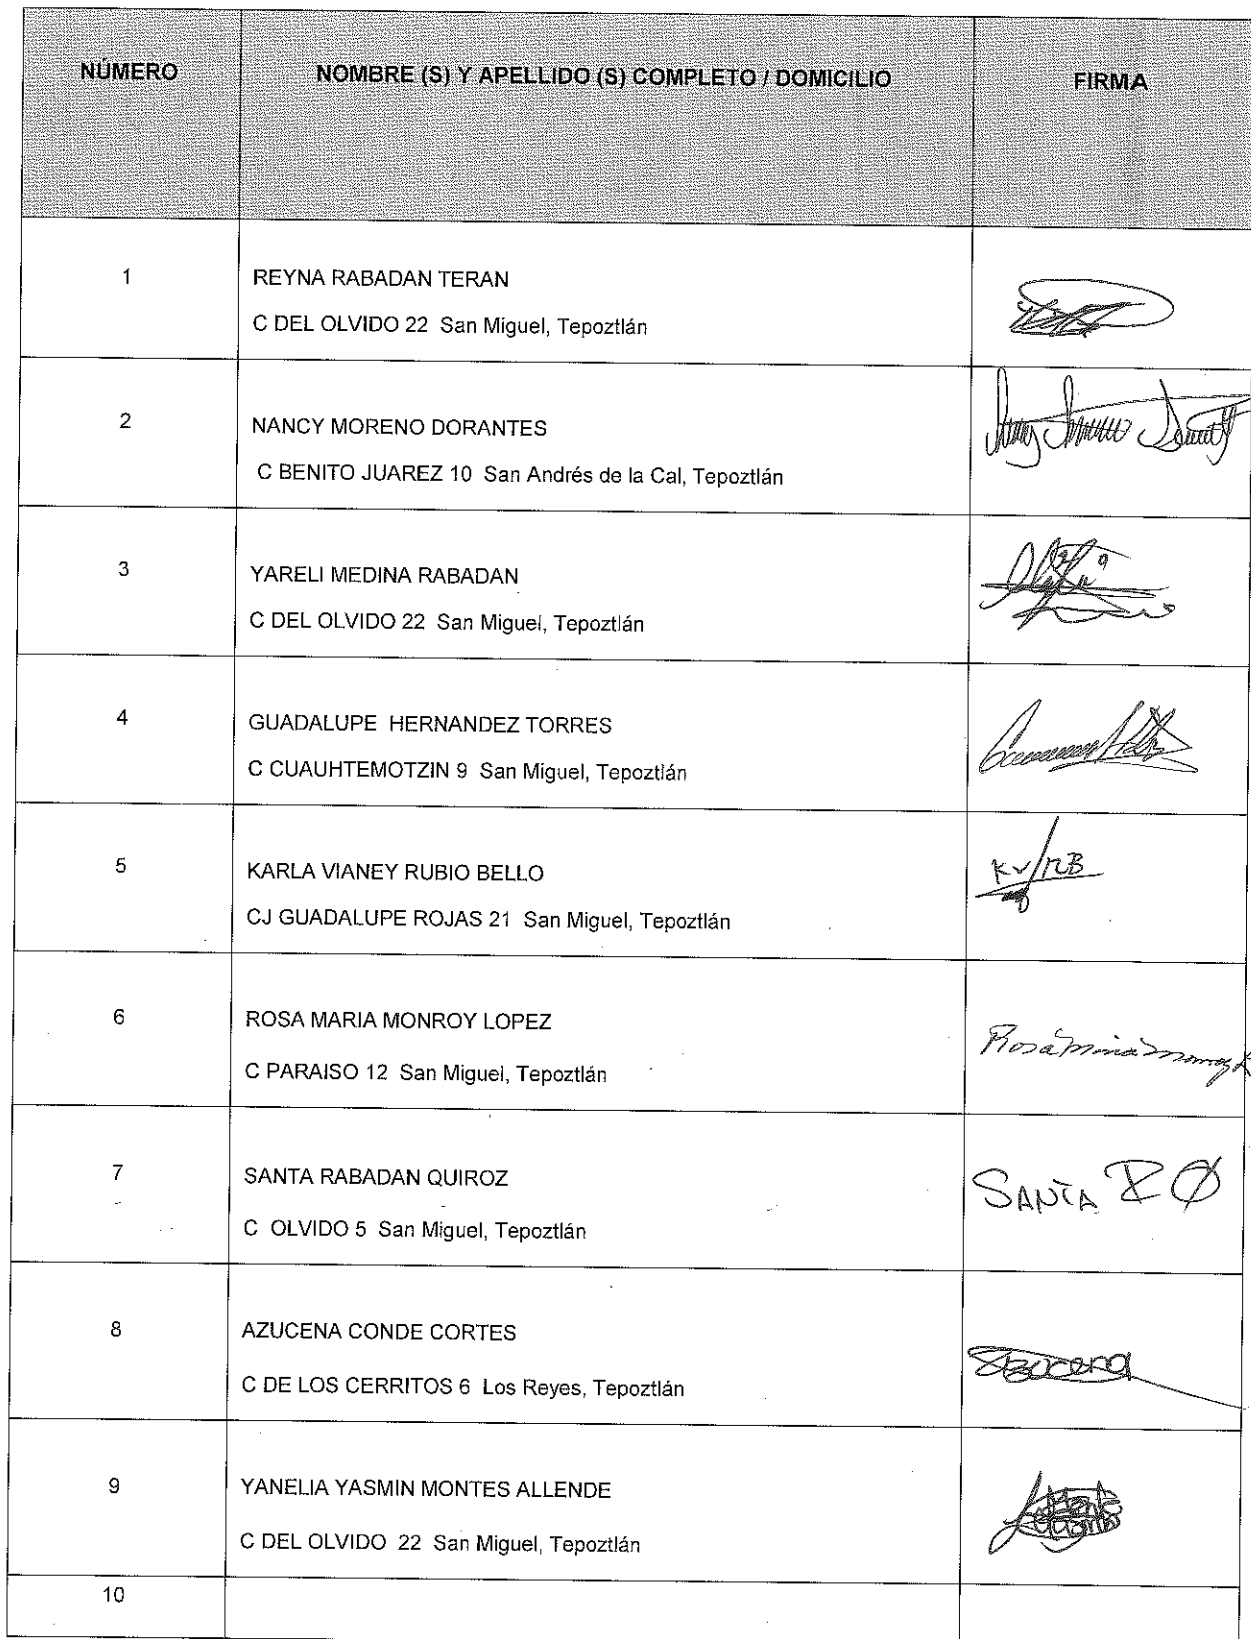 NÚMERO NOMBRE (S) Y APELLIDO (S) COMPLETO / DOMICILIO FIRMA
1 REYNA RABADAN TERAN
C DEL OLVIDO 22 San Miguel, Tepoztlán
2 NANCY MORENO DORANTES
C BENITO JUAREZ 10 San Andrés de la Cal, Tepoztlán
3 YARELI MEDINA RABADAN
C DEL OLVIDO 22 San Miguel, Tepoztlán
4 GUADALUPE HERNANDEZ TORRES
C CUAUHTEMOTZIN 9 San Miguel, Tepoztlán
5 KARLA VIANEY RUBIO BELLO
KV/RB
CJ GUADALUPE ROJAS 21 San Miguel, Tepoztlán
6 ROSA MARIA MONROY LOPEZ
Rosa
C PARAISO 12 San Miguel, Tepoztlán
7 SANTA RABADAN QUIROZ
SANTA R Q
C OLVIDO 5 San Miguel, Tepoztlán
8 AZUCENA CONDE CORTES
Azucena
C DE LOS CERRITOS 6 Los Reyes, Tepoztlán
9 YANELIA YASMIN MONTES ALLENDE
C DEL OLVIDO 22 San Miguel, Tepoztlán
10